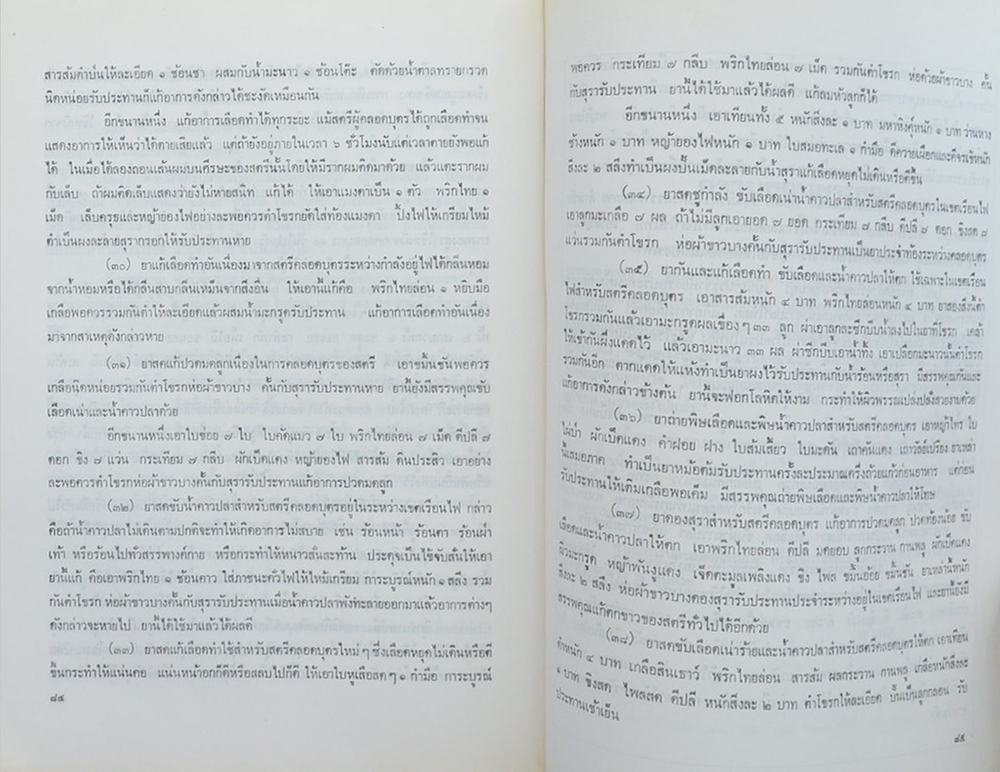 สารส้มตำป่นให้ละเอียด ๑ ช้อนชา ผสมกับน้ำมะนาว ๑ ช้อนโต๊ะ ตัดด้วยน้ำตาลทรายกรวด
นิดหน่อยรับประทานก็แก้อาการดังกล่าวได้ชะงัดเหมือนกัน
อีกขนานหนึ่ง แก้อาการเลือดทำได้ทุกระยะ แม้สตรีผู้คลอดบุตรได้ถูกเลือดทำจน
แสดงอาการให้เห็นว่าได้ตายเสียแล้ว แต่ถ้ายังอยู่ภายในเวลา ๖ ชั่วโมงนับแต่เวลาตายยังพอแก้
ได้ ในเมื่อได้ลองถอนเส้นผมบนศีรษะของสตรีนั้นโดยให้มีรากผมติดมาด้วย แล้วแตะรากผม
กับเล็บ ถ้าผมติดเล็บแสดงว่ายังไม่หายสนิท แก้ได้ ให้เอาแมงดาเป็น ๑ ตัว พริกไทย ๑
เม็ด เล็บครุฑและหญ้ายองไฟอย่างละพอควรตำโขรกยัดใส่ท้องแมงดา ปิ้งไฟให้เกรียมไหม้
ตำเป็นผงละลายสุรากรอกให้รับประทานหาย
(๓๐) ยาแก้เลือดทำอันเนื่องมาจากสตรีคลอดบุตรระหว่างกำลังอยู่ไฟได้กลิ่นหอม
จากน้ำหอมหรือได้กลิ่นสาบกลิ่นเหม็นจากสิ่งอื่น ให้เอานี้แก้คือ พริกไทยล่อน ๑ หยิบมือ
เกลือพอควรรวมกันตำให้ละเอียดแล้วผสมน้ำมะกรูดรับประทาน แก้อาการเลือดทำอันเนื่อง
มาจากสาเหตุดังกล่าวหาย
(๓๑) ยาสดแก้ปวดมดลูกเนื่องในการคลอดบุตรของสตรี เอาขมิ้นชันพอควร
เกลือนิดหน่อยรวมกันตำโขรกห่อผ้าขาวบาง คั้นกับสุรารับประทานหาย ยานี้ยังมีสรรพคุณขับ
เลือดเน่าและน้ำคาวปลาด้วย
อีกขนานหนึ่งเอาใบข่อย ๗ ใบ ใบคัดแมว ๗ ใบ พริกไทยล่อน ๗ เม็ด ดีปลี ๗
ดอก ขิง ๗ แว่น กระเทียม ๗ กลีบ ผักเป็ดแดง หญ้ายองไฟ สารส้ม ดินประสิว เอาอย่าง
ละพอควรตำโขรกห่อผ้าขาวบางคั้นกับสุรารับประทานแก้อาการปวดมดลูก
(๓๒) ยาสดขับน้ำคาวปลาสำหรับสตรีคลอดบุตรอยู่ในระหว่างเขตเรือนไฟ กล่าว
คือถ้าน้ำคาวปลาไม่เดินตามปกติจะทำให้เกิดอาการไม่สบาย เช่น ร้อนหน้า ร้อนตา ร้อนฝ่า
เท้า หรือร้อนไปทั่วสรรพางค์กาย หรือกระทำให้หนาวสั่นสะท้าน ประดุจเป็นไข้จับสั่นให้เอา
ยานี้แก้ คือเอาพริกไทย ๑ ช้อนคาว ใส่ภาชนะคั่วไฟให้ไหม้เกรียม การะบูรณ์หนัก ๑ สลึง รวม
กันตำโขรก ห่อผ้าขาวบางคั้นกับสุรารับประทานเมื่อน้ำคาวปลาพังทะลายออกมาแล้วอาการต่างๆ
ดังกล่าวจะหายไป ยานี้ได้ใช้มาแล้วได้ผลดี
(๓๓) ยาสดแก้เลือดทำใช้สำหรับสตรีคลอดบุตรใหม่ๆ ซึ่งเลือดหยุดไม่เดินหรือตี
ขึ้นกระทำให้แน่นคอ แน่นหน้าอกก็ดีหรือสลบไปก็ดี ให้เอาใบหูเสือสดๆ ๑ กำมือ การะบูรณ์
๘๔
พอควร กระเทียม ๗ กลีบ พริกไทยล่อน ๗ เม็ด รวมกันตำโขรก ห่อด้วยผ้าขาวบาง คั้น
กับสุรารับประทาน ยานี้ได้ใช้มาแล้วได้ผลดี แก้ลมหัวลูกก็ได้
อีกขนานหนึ่ง เอาเทียนทั้ง ๕ หนักสิ่งละ ๑ บาท มหาหิงคุ์หนัก ๑ บาท ว่านหาง
ช้างหนัก ๑ บาท หญ้ายองไฟหนัก ๑ บาท ใบสมอทะเล ๑ กำมือ ดีควายเผือกและดีจรเข้หนัก
สิ่งละ ๒ สลึงทำเป็นผงปั้นเม็ดละลายกับน้ำสุราแก้เลือดหยุดไม่เดินหรือตีขึ้น
(๓๔) ยาสดชูกำลัง ขับเลือดเน่าน้ำคาวปลาสำหรับสตรีคลอดบุตรในเขตเรือนไฟ
เอาลูกมะเกลือ ๗ ผล ถ้าไม่มีลูกเอายอด ๗ ยอด กระเทียม ๗ กลีบ ดีปลี ๗ ดอก ขิงสด ๗
แว่นรวมกันตำโขรก ห่อผ้าขาวบางคั้นกับสุรารับประทานเป็นยาประจำท้องระหว่างคลอดบุตร
(๓๕) ยากันและแก้เลือดทำ ขับเลือดและน้ำคาวปลาให้ตก ใช้เฉพาะในเขตเรือน
ไฟสำหรับสตรีคลอดบุตร เอาสารส้มหนัก ๔ บาท พริกไทยล่อนหนัก ๔ บาท ยาสองสิ่งนี้ตำ
โขรกรวมกันแล้วเอามะกรูดผลเขื่องๆ ๓๓ ลูก ผ่าเอาลูกละซีกบีบน้ำลงไปในยาที่โขรก เคล้า
ให้เข้ากันผึ่งแดดไว้ แล้วเอามะนาว ๓๓ ผล ผ่าซีกบีบเอาน้ำทิ้ง เอาเปลือกมะนาวนั้นตำโขรก
รวมกันอีก ตากแดดให้แห้งทำเป็นยาผงไว้รับประทานกับน้ำร้อนหรือสุรา มีสรรพคุณกันและ
แก้อาการดังกล่าวข้างต้น ยานี้จะฟอกโลหิตให้งาม กระทำให้ผิวพรรณเปล่งปลั่งสวยงามด้วย
(๓๖) ยาถ่ายพิษเลือดและพิษน้ำคาวปลาสำหรับสตรีคลอดบุตร เอาหญ้าไทร ใบ
ไผ่ป่า ผักเป็ดแดง คำฝอย ฝาง ใบส้มเสี้ยว ใบมะคัน เถาคันแดง เถาวัลย์เปรียง ยาเหล่า
นี้เสมอภาค ทำเป็นยาหม้อต้มรับประทานครั้งละประมาณครึ่งถ้วยแก้วก่อนอาหาร แต่ก่อน
รับประทานให้เติมเกลือพอเค็ม มีสรรพคุณถ่ายพิษเลือดและพิษน้ำคาวปลาให้โทษ
(๓๗) ยาดองสุราสำหรับสตรีคลอดบุตร แก้อาการปวดมดลูก ปวดท้องน้อย ขับ
เลือดและน้ำคาวปลาให้ตก เอาพริกไทยล่อน ดีปลี มดยอบ ลูกกระวาน กานพลู ผักเป็ดแดง
ผิวมะกรูด หญ้าพันงูแดง เจ็ตตะมูลเพลิงแดง ขิง ไพล ขมิ้นอ้อย ขมิ้นชัน ยาเหล่านี้หนัก
สิ่งละ ๒ สลึง ห่อผ้าขาวบางดองสุรารับประทานประจำระหว่างอยู่ในเขตเรือนไฟ และยานี้ยังมี
สรรพคุณแก้ตกขาวของสตรีทั่วไปได้อีกด้วย
(๓๘) ยาสดขับเลือดเน่าร้ายและน้ำคาวปลาสำหรับสตรีคลอดบุตรให้ตก เอาเทียน
ดำหนัก ๔ บาท เกลือสินเธาว์ พริกไทยล่อน สารส้ม ผลกระวาน กานพลู เกลือหนักสิ่งละ
๑ บาท ขิงสด ไพลสด ดีปลี หนักสิ่งละ ๒ บาท ตำโขรกให้ละเอียด ปั้นเป็นลูกกลอน รับ
ประทานเช้าเย็น
๘๕